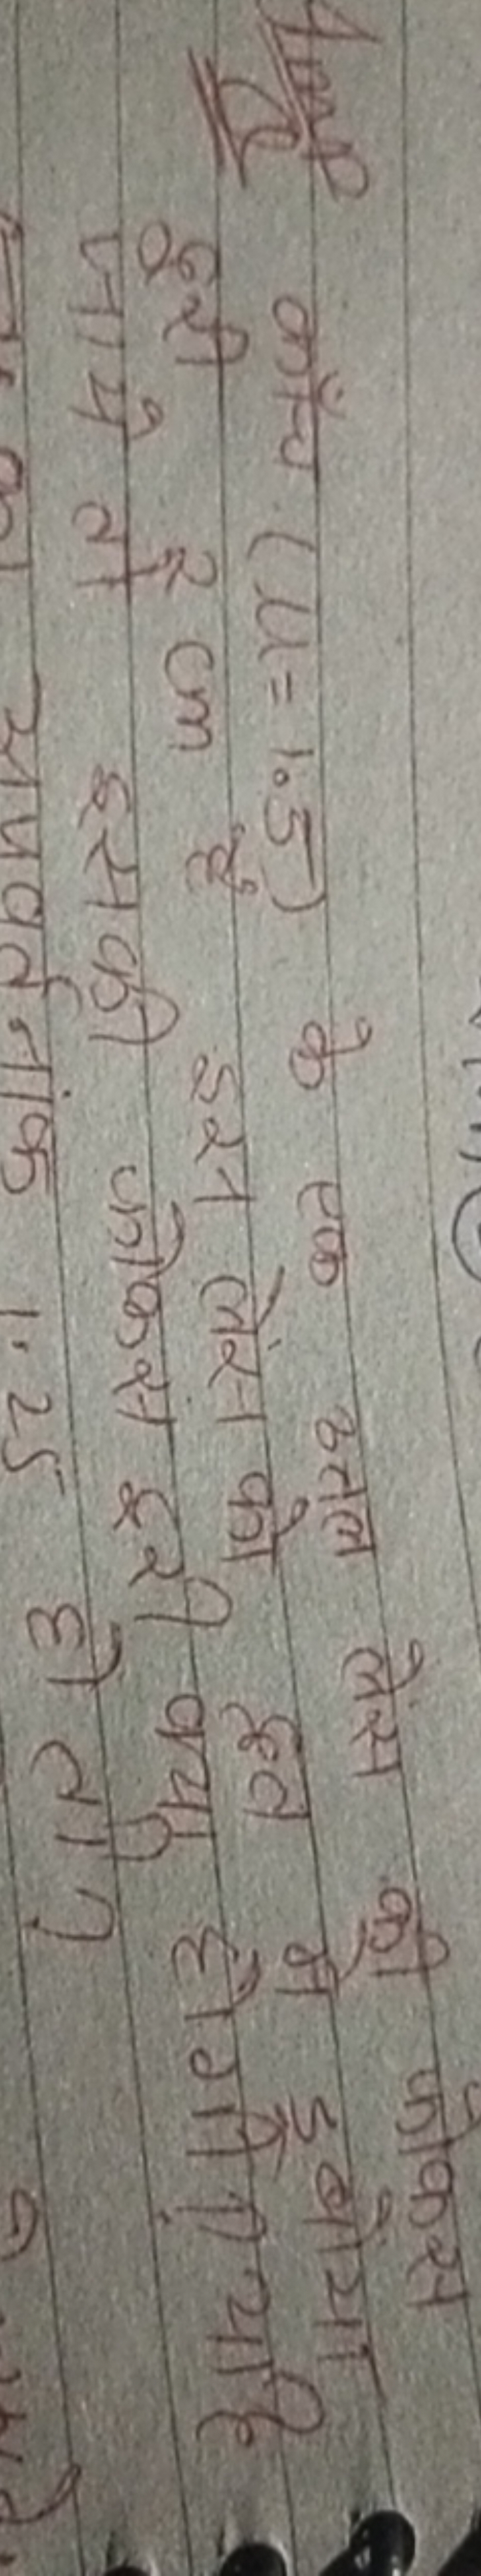 Imp
Q काँच (μ = 1.5) के एक उत्तल लेंस की फोकस
दूरी 2 cm है इस लेंस को द्रव में डुबोया
जाये तो इसकी फोकस दूरी क्या होगी यदि
द्रव का अपवर्तनांक 1.25 हो तो ?